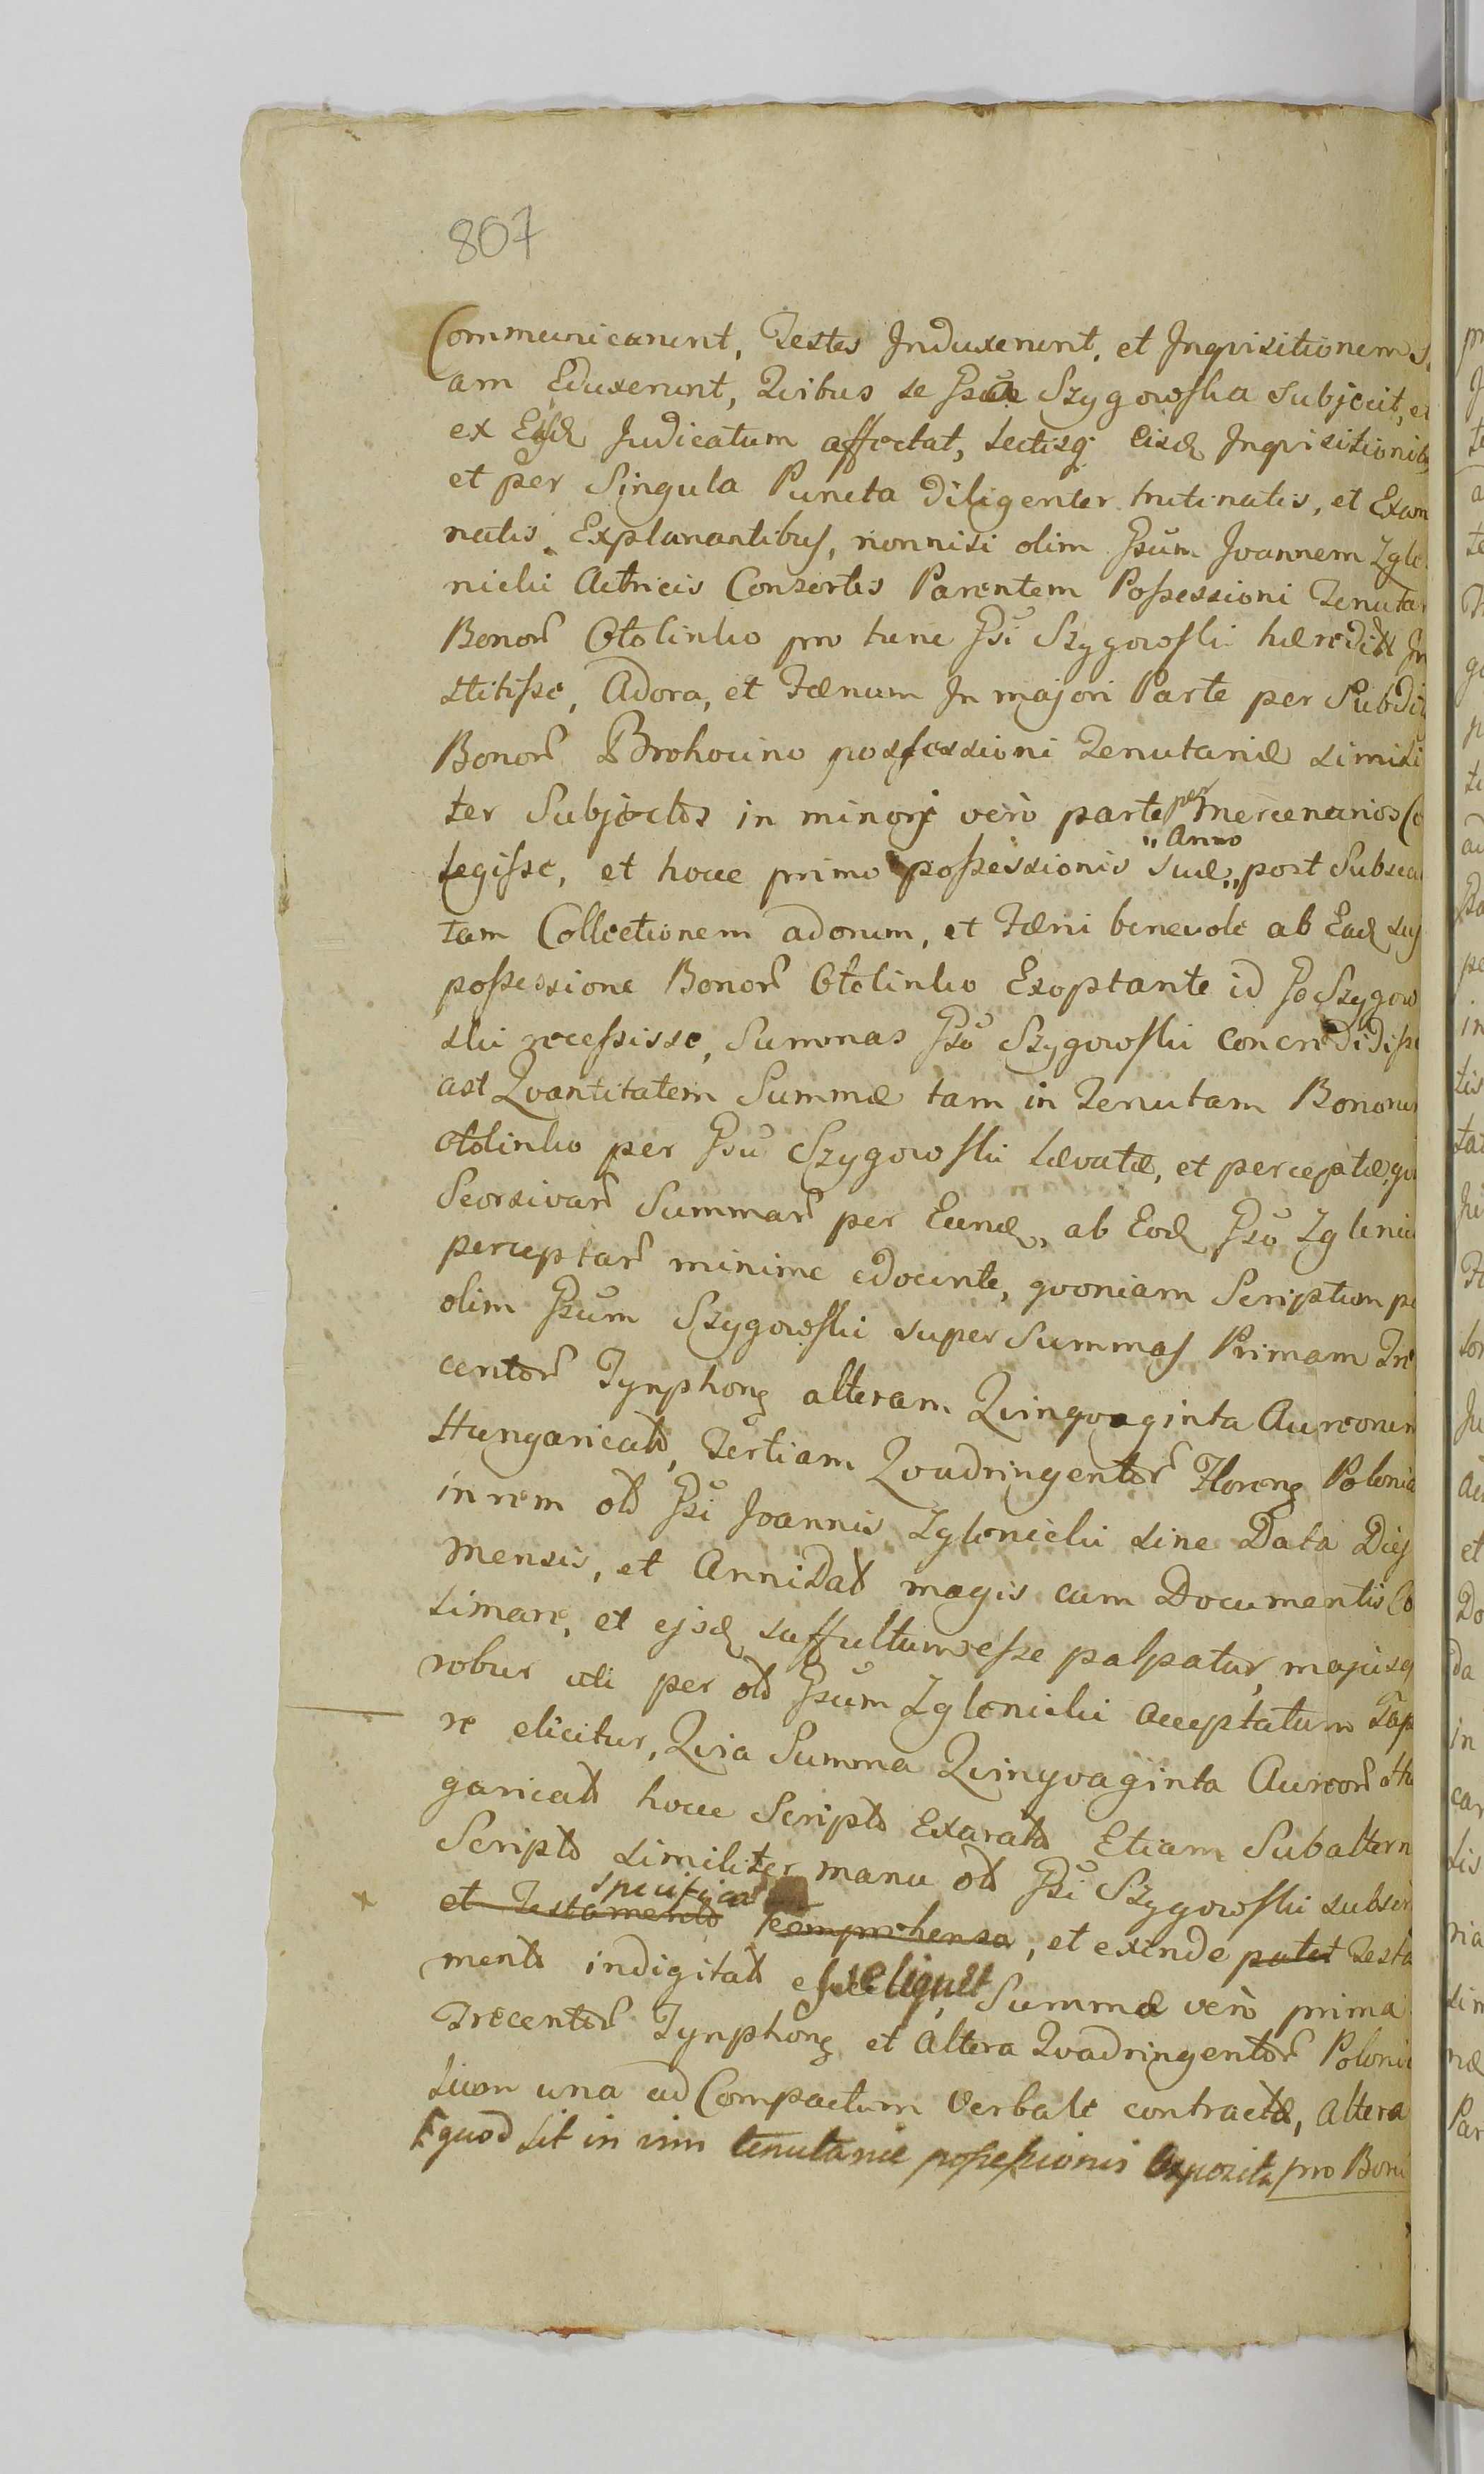 807
Communicarunt, Testes Induxerunt, et Inqvisitionem s
am Eduxerunt, Qvibus se Gsa Szygowska subjecit, et
ex Eisd Judicatum affectat, Lectisq eisd Inqvisitionib
et per Singula Puncta Diligenter trutinatis, et Exam
natis. Explanantibus, nonnisi olim Gsum Joannem Zgle
nicki Actricis Consortis Parentem Possessioni Tenutar
Bonor Otolinko pro tunc Gsi Szygowski hæredit In
stitisse, Adora, et Fænum In majori Parte per Subdit
Bonor Brohocino possessioni Tenutariæ simili
ter Subjectos in minori verò parte per mercenarios Co
legisse, et hocce primo possessionis suæ „Anno„ post Subsecu
tam Collectionem adorum, et Fæni benevole ab Ead sus
possessione Bonor Otolinko Exoptante id Gso Szygow
ski recessisse, Summas Gso Szygowski Concredidisse
ast Qvantitatem Summæ tam in Tenutam Bonorum
Otolinko per Gsu Szygowski Lævatæ, et perceptæ, qu
Seorsivar Summar per Eund, ab Eod Gso Zglenic
perceptar minime edocente, qvoniam Scriptum pe
olim Gsum Szygowski super Summas Primam Tre
centor Tynphong alteram Qvinqvaginta Aureorum
Hungaricalb, Tertiam Qvadringentor Floreng Polonic
in rem olb Gsi Joannis Zglenicki sine Data Diej
Mensis, et Anni Dat magis cum Documentis Co
simare, et ejsd suffultum esse palpatur, majusq
robur uti per olb Gsum Zglenicki acceptatum Tap
re elicitur, Qvia Summa Qvinqvaginta Aureor Hu
garicalb hocce Scripto Exarata Etiam Subaltern
Scripto similiter manu olb Gsi Szygowski subscr
et Testamento specificat comprehensa, et exinde patet Testa
mento indigitat esse liqvet, Summæ verò prima
Trecentor Tynphong et Altera Qvadringentor Polonic
lium una ad Compactum Verbale contractæ, altera
quod sit in vim tenutariæ possessionis exposita pro Boni